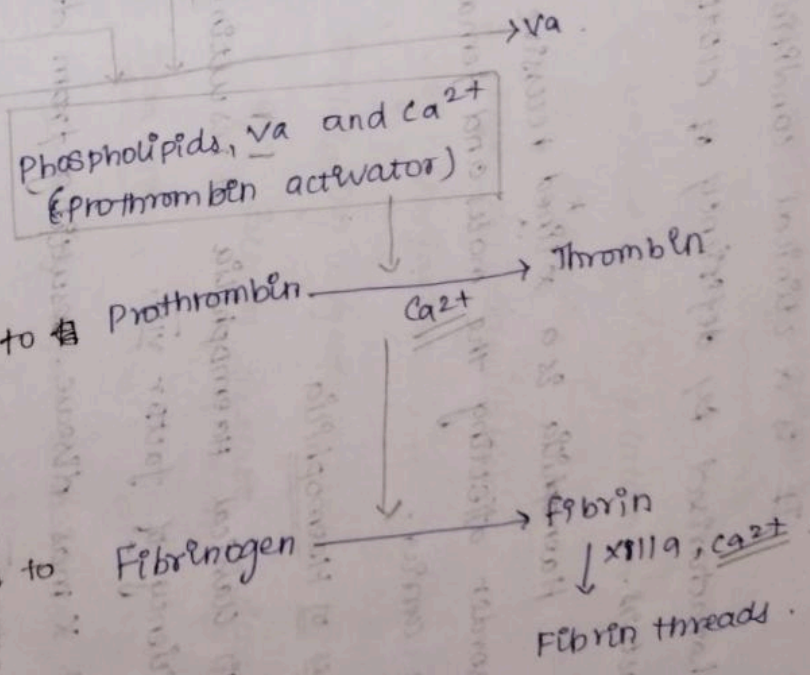 Va
Phospholipids, Va and Ca2+
(Prothrombin activator)
to Prothrombin Thrombin
Ca2+
to Fibrinogen Fibrin
XIIIa, Ca2+
Fibrin threads.